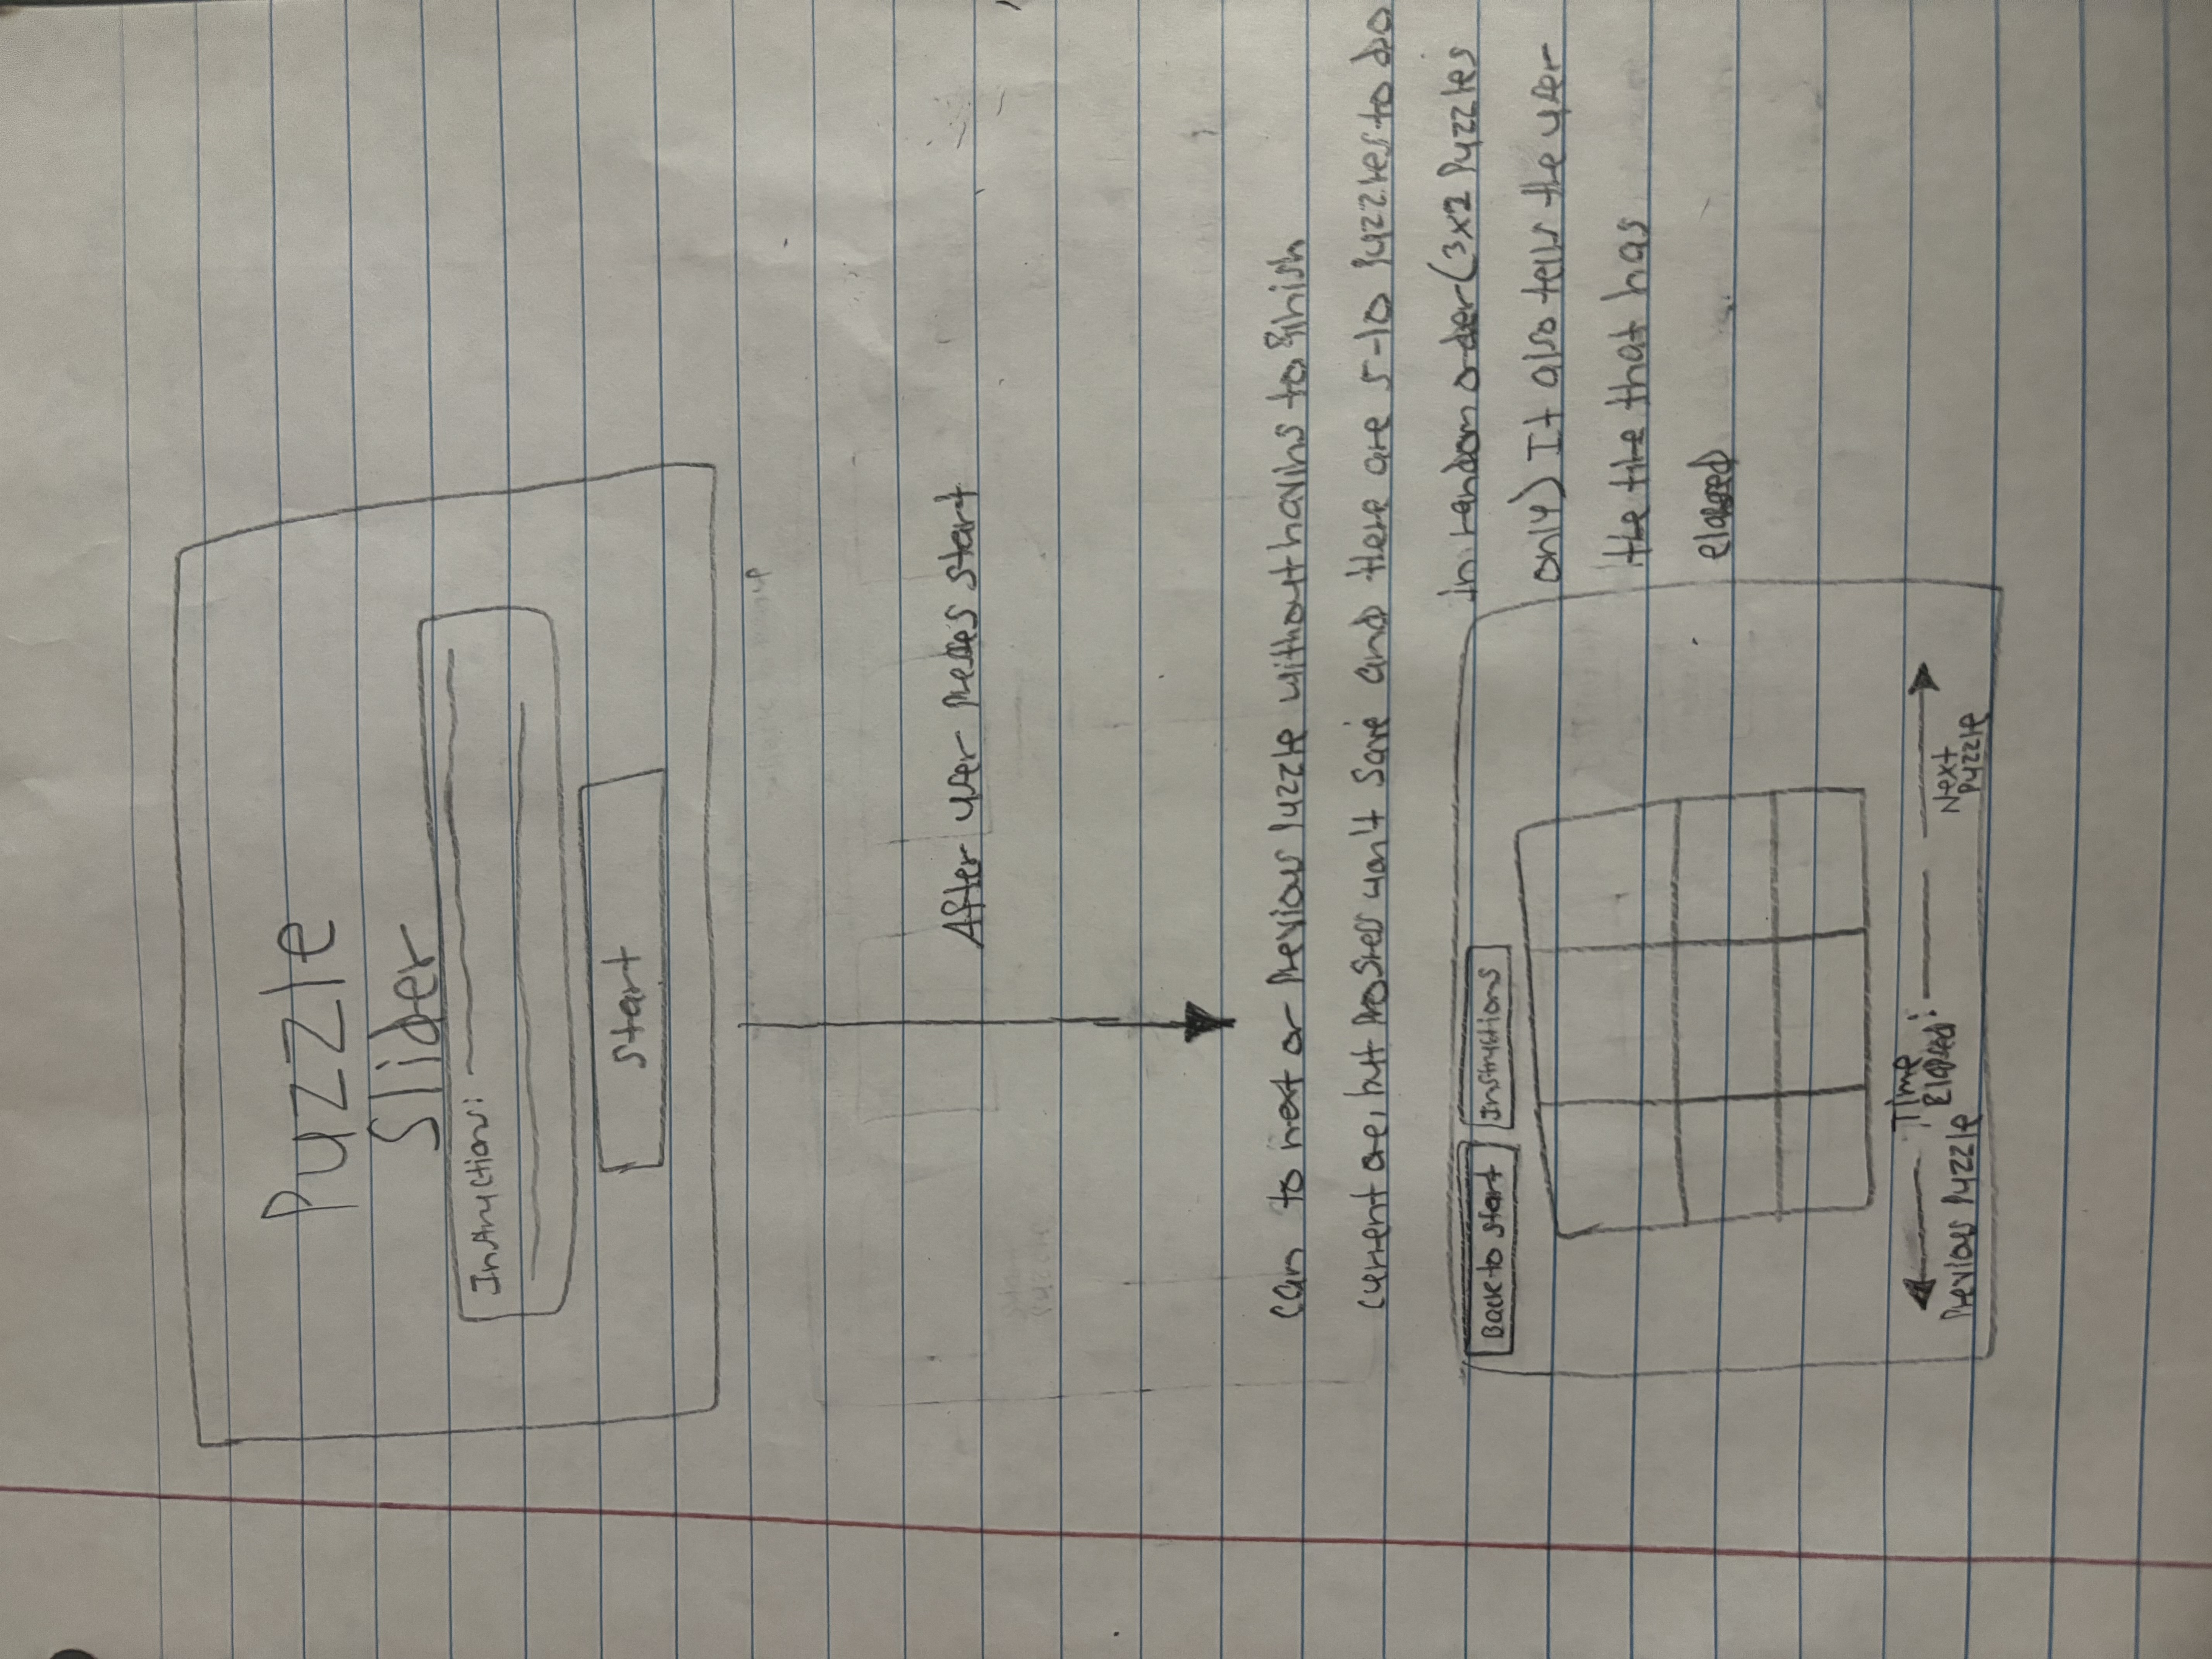 Puzzle
Slider
Instructions:
Start
After user presses start
can to next or previous puzzle without having to finish
current one, but progress won't save and there are 5-10 puzzles to do
in random order (3x2 Puzzles
only) It also tells the user
the time that has
elapsed
Back to start
Instructions
Time
Elapsed:
Previous Puzzle
Next
Puzzle